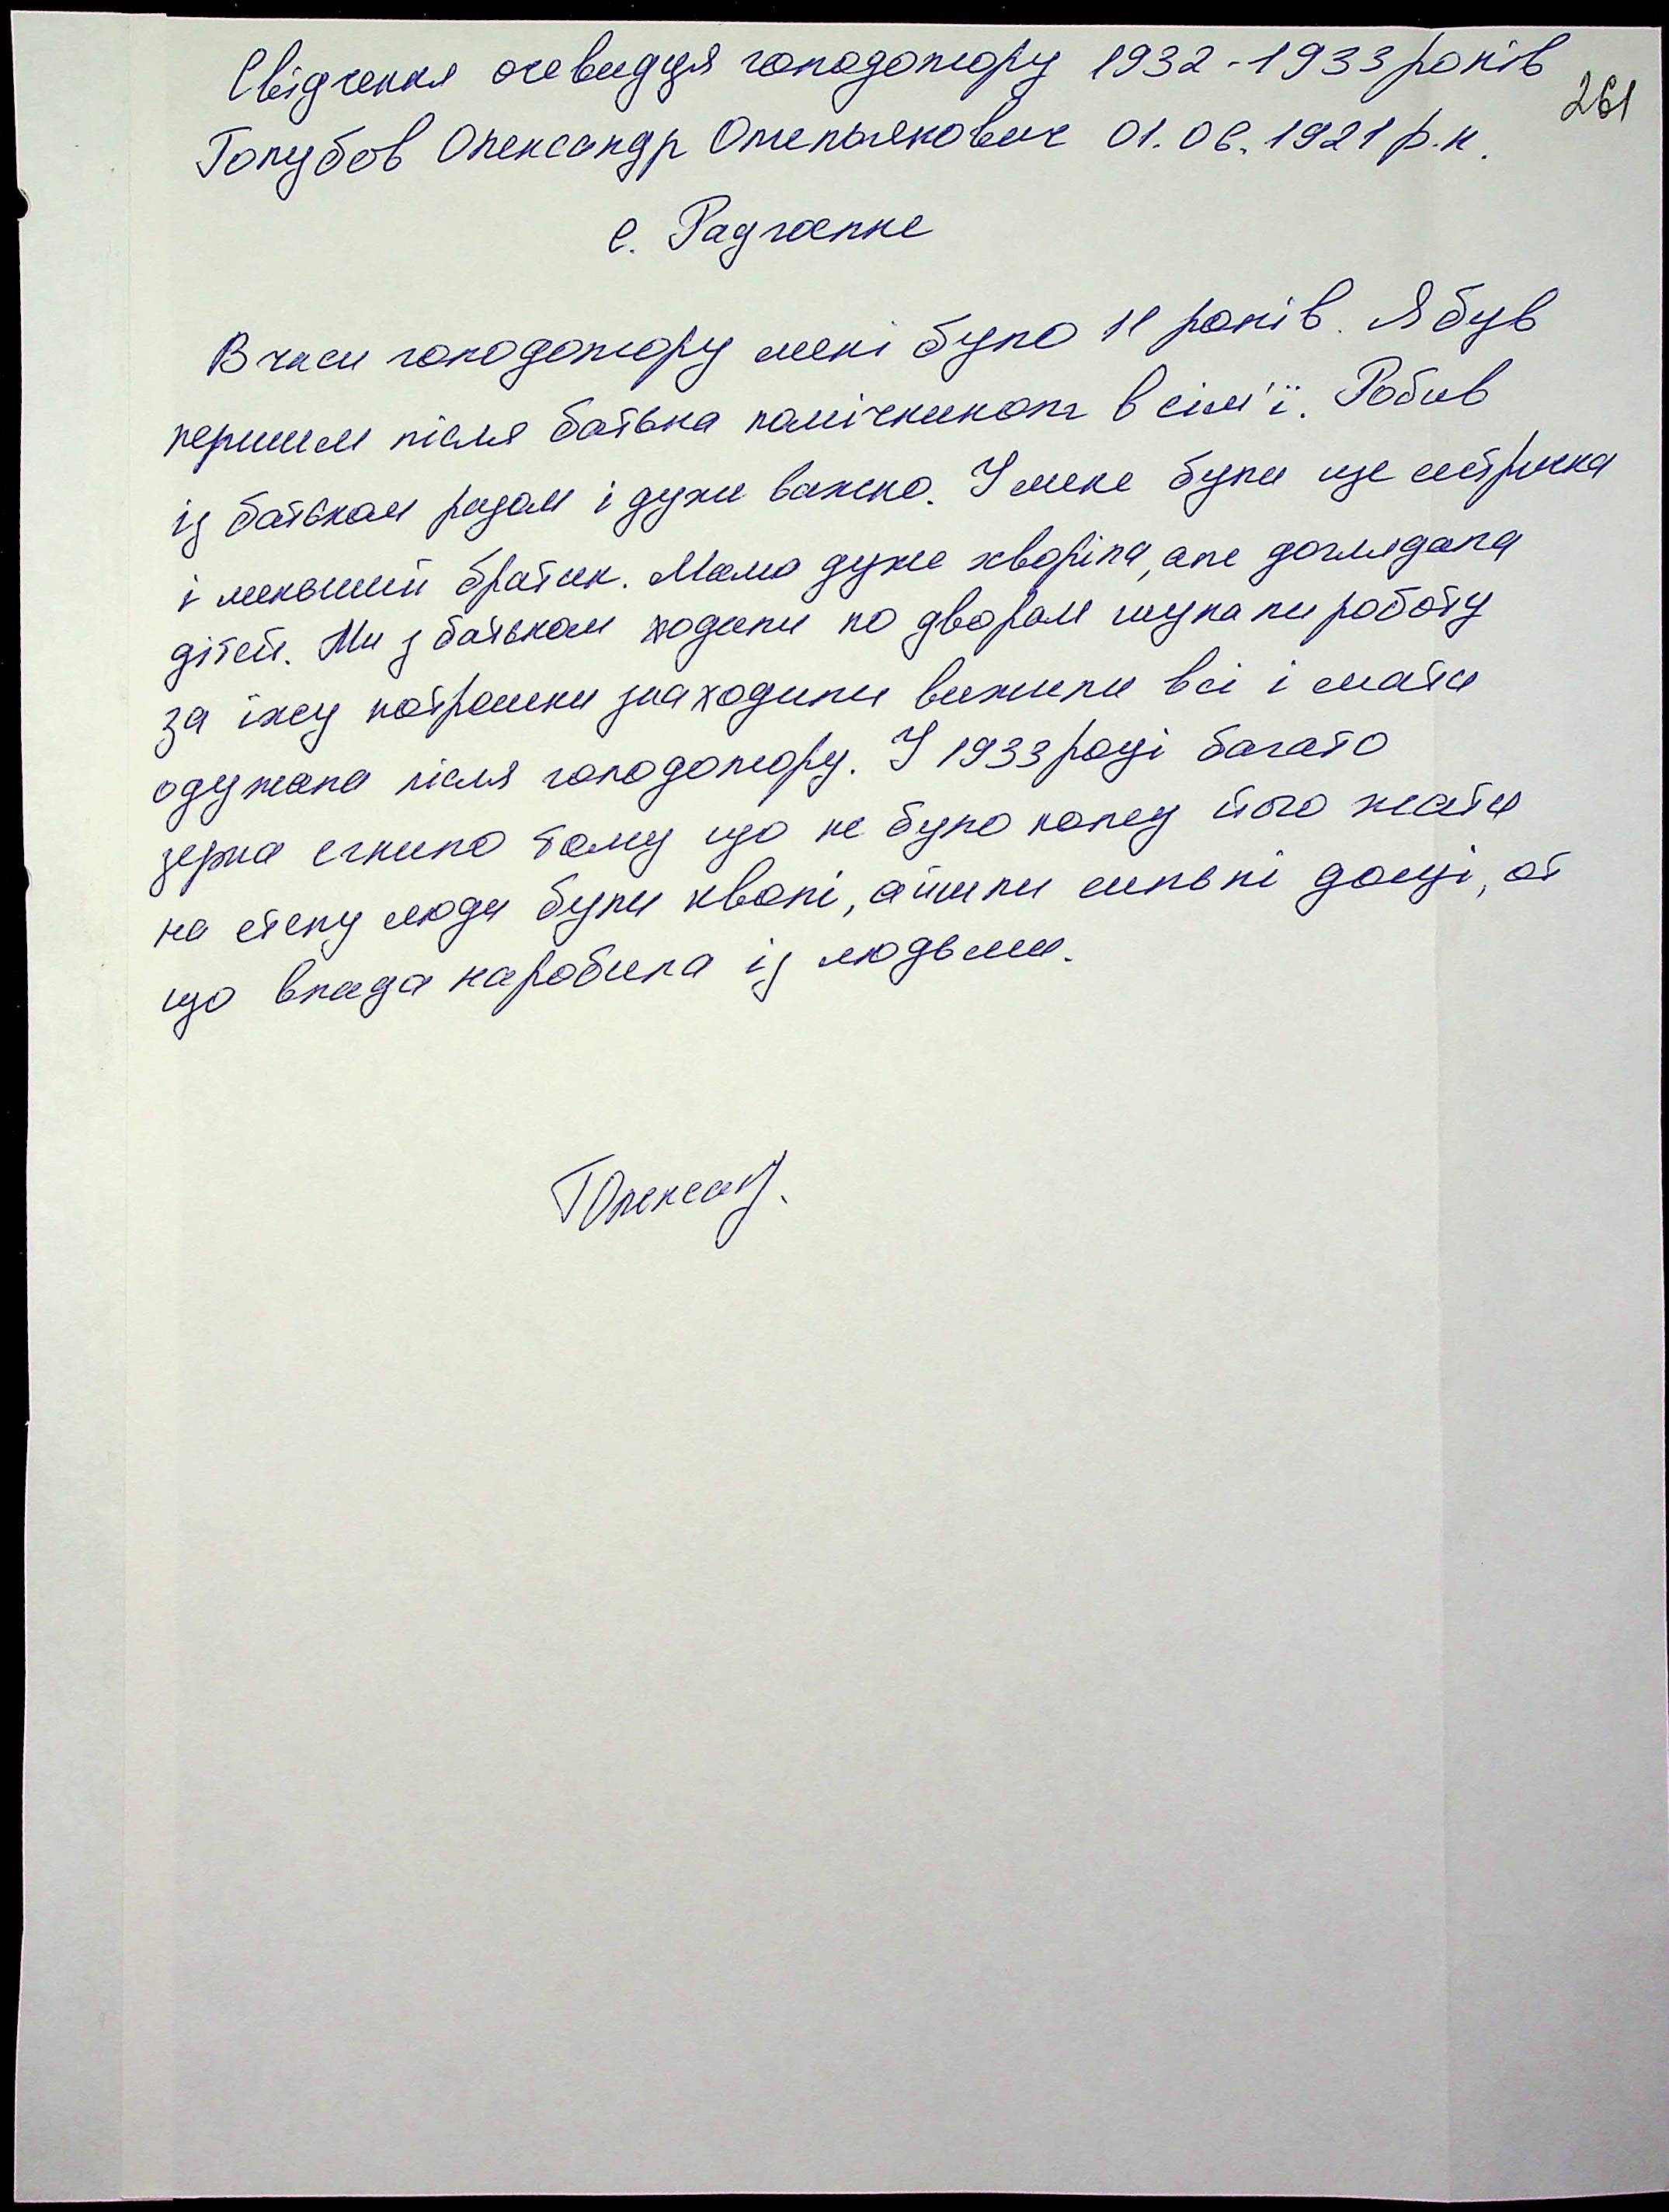 Свідчення очевидця голодомору 1932-1933 років
261
Голубов Олександр Омельянович 01.06.1921 р.н.
с. Радгоспне
В часи голодомору мені було 11 років. Я був
першим після батька помічником в сім'ї. Робив
із батьком разом і дуже важко. У мене були ще сестричка
і меньший братик. Мама дуже хворіла, але доглядала
дітей. Ми з батьком ходили по дворам шукали роботу
за їжу потрошки знаходили вижили всі і мати
одужала після голодомору. У 1933 році багато
зерна згнило тому що не було кому його жати
на степу люди були кволі, а йшли сильні дощі, от
що влада наробила із людьми.
ГОлександ.